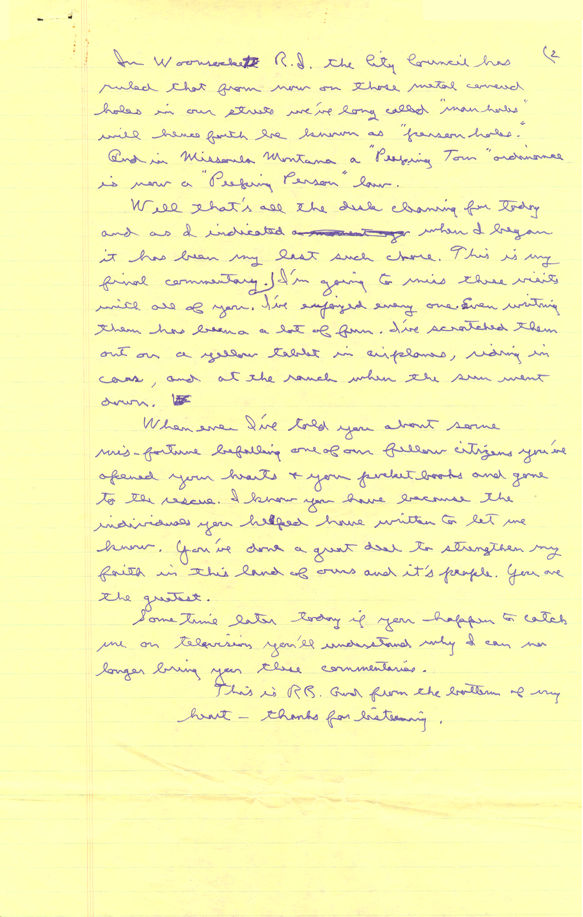 (2
In Woonsockett R.I. the City Council has
ruled that from now on those metal covered
holes in our streets we've long called "man holes"
will hence forth be known as "person holes."
And in Missoula Montana a "Peeping Tom" ordinance
is now a "Peeping Person" law.
Well that's all the desk cleaning for today
and as I indicated a moment ago when I began
it has been my last such chore. This is my
final commentary. I'm going to miss these visits
with all of you. I've enjoyed every one. Even writing
them has been a lot of fun. I've scratched them
out on a yellow tablet in airplanes, riding in
cars, and at the ranch when the sun went
down.
When ever I've told you about some
mis-fortune befalling one of our fellow citizens you've
opened your hearts & your pocket books and gone
to the rescue. I know you have because the
individuals you helped have written to let me
know. You've done a great deal to strengthen my
faith in this land of ours and it's people. You are
the greatest.
Some time later today if you happen to catch
me on television you'll understand why I can no
longer bring you these commentaries.
This is RR. And from the bottom of my
heart – thanks for listening.